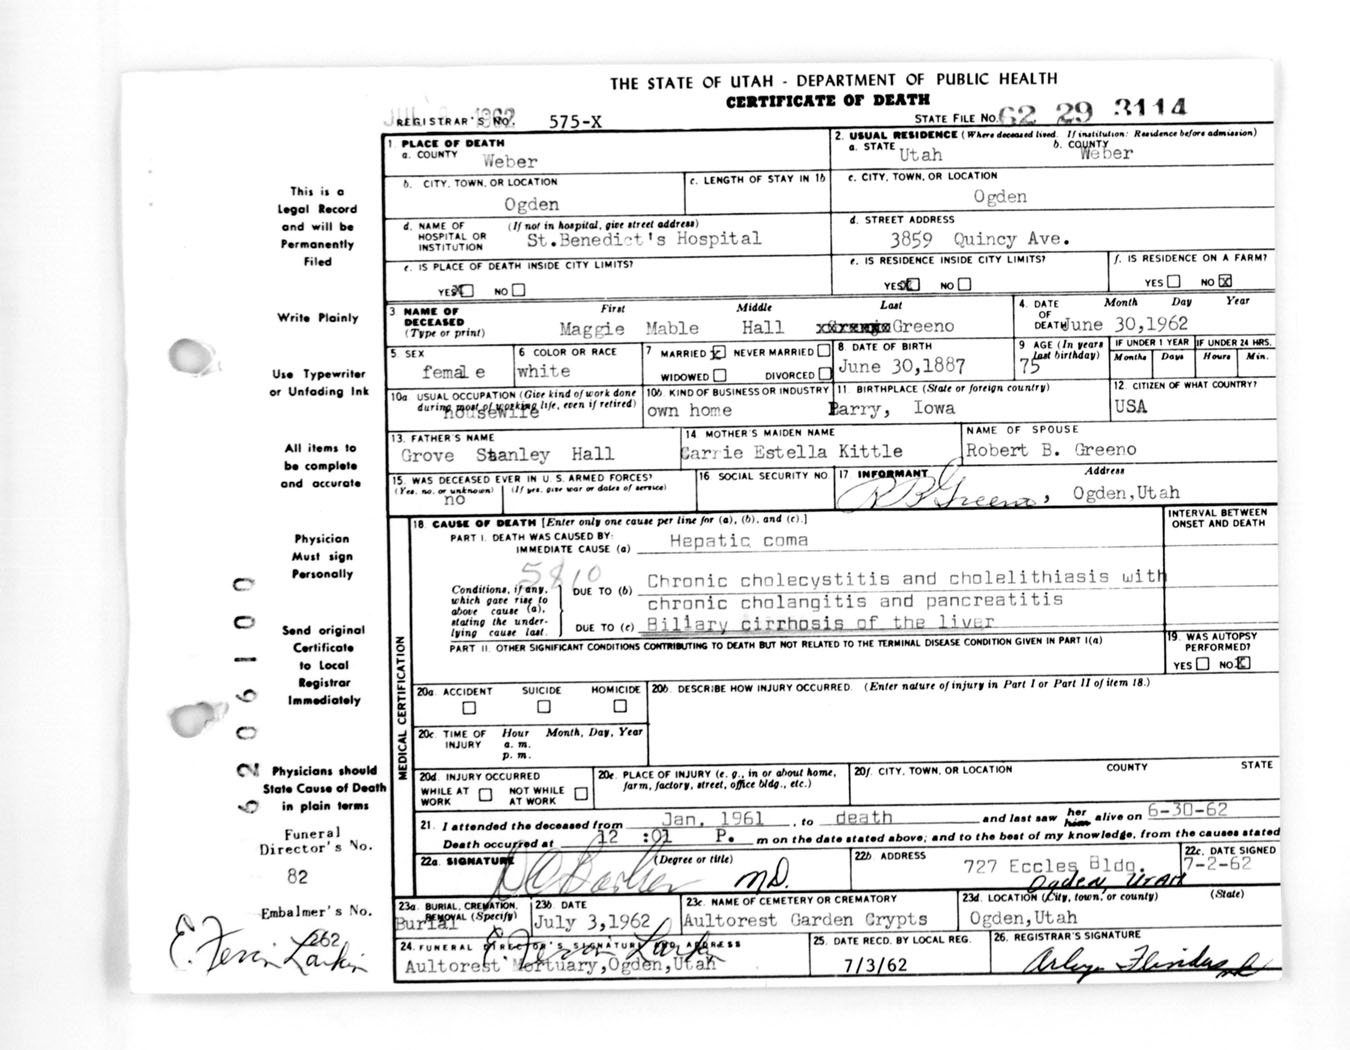 THE STATE OF UTAH - DEPARTMENT OF PUBLIC HEALTH
CERTIFICATE OF DEATH
1962
REGISTRAR'S NO. 575-X
STATE FILE NO. 62 29 3114
1. PLACE OF DEATH
a. COUNTY Weber
2. USUAL RESIDENCE (Where deceased lived. If institution: Residence before admission)
a. STATE Utah b. COUNTY Weber
b. CITY, TOWN, OR LOCATION Ogden
c. LENGTH OF STAY IN 1b
c. CITY, TOWN, OR LOCATION Ogden
d. NAME OF HOSPITAL OR INSTITUTION (If not in hospital, give street address) St.Benedict's Hospital
d. STREET ADDRESS 3859 Quincy Ave.
e. IS PLACE OF DEATH INSIDE CITY LIMITS? YES X NO
e. IS RESIDENCE INSIDE CITY LIMITS? YES X NO
f. IS RESIDENCE ON A FARM? YES NO X
3 NAME OF DECEASED (Type or print) First Middle Last
Maggie Mable Hall Greeno
4. DATE OF DEATH Month Day Year
June 30,1962
5. SEX female
6 COLOR OR RACE white
7 MARRIED X NEVER MARRIED
WIDOWED DIVORCED
8 DATE OF BIRTH June 30,1887
9 AGE (In years last birthday) 75
IF UNDER 1 YEAR Months Days
IF UNDER 24 HRS. Hours Min.
10a. USUAL OCCUPATION (Give kind of work done during most of working life, even if retired) housewife
10b. KIND OF BUSINESS OR INDUSTRY own home
11 BIRTHPLACE (State or foreign country) Parry, Iowa
12. CITIZEN OF WHAT COUNTRY? USA
13. FATHER'S NAME Grove Stanley Hall
14 MOTHER'S MAIDEN NAME Carrie Estella Kittle
NAME OF SPOUSE Robert B. Greeno
15. WAS DECEASED EVER IN U. S. ARMED FORCES?
(Yes, no, or unknown) (If yes, give war or dates of service)
no
16 SOCIAL SECURITY NO.
17 INFORMANT Address
R B Greeno, Ogden,Utah
MEDICAL CERTIFICATION
18. CAUSE OF DEATH [Enter only one cause per line for (a), (b), and (c).]
INTERVAL BETWEEN ONSET AND DEATH
PART I. DEATH WAS CAUSED BY:
IMMEDIATE CAUSE (a) Hepatic coma
5810
Conditions, if any, which gave rise to above cause (a), stating the underlying cause last.
DUE TO (b) Chronic cholecystitis and cholelithiasis with
chronic cholangitis and pancreatitis
DUE TO (c) Biliary cirrhosis of the liver
PART II. OTHER SIGNIFICANT CONDITIONS CONTRIBUTING TO DEATH BUT NOT RELATED TO THE TERMINAL DISEASE CONDITION GIVEN IN PART I(a)
19. WAS AUTOPSY PERFORMED?
YES NO X
20a. ACCIDENT SUICIDE HOMICIDE
20b. DESCRIBE HOW INJURY OCCURRED. (Enter nature of injury in Part I or Part II of item 18.)
20c. TIME OF INJURY Hour Month, Day, Year
a. m.
p. m.
20d. INJURY OCCURRED
WHILE AT WORK NOT WHILE AT WORK
20e. PLACE OF INJURY (e. g., in or about home, farm, factory, street, office bldg., etc.)
20f. CITY, TOWN, OR LOCATION COUNTY STATE
21. I attended the deceased from Jan, 1961, to death and last saw her him alive on 6-30-62
Death occurred at 12 :01 P. m on the date stated above; and to the best of my knowledge, from the causes stated
22a. SIGNATURE (Degree or title)
M.D.
22b ADDRESS 727 Eccles Bldg.
Ogden, Utah
22c. DATE SIGNED 7-2-62
23a. BURIAL, CREMATION, REMOVAL (Specify) Burial
23b. DATE July 3,1962
23c. NAME OF CEMETERY OR CREMATORY Aultorest Garden Crypts
23d. LOCATION (City, town, or county) (State)
Ogden,Utah
24. FUNERAL DIRECTOR'S SIGNATURE AND ADDRESS
E. Fervin Larkin
Aultorest Mortuary,Ogden,Utah
25. DATE RECD. BY LOCAL REG. 7/3/62
26. REGISTRAR'S SIGNATURE
This is a
Legal Record
and will be
Permanently
Filed
Write Plainly
Use Typewriter
or Unfading Ink
All items to
be complete
and accurate
Physician
Must sign
Personally
Send original
Certificate
to Local
Registrar
Immediately
Physicians should
State Cause of Death
in plain terms
Funeral
Director's No.
82
Embalmer's No.
262
E. Fervin Larkin